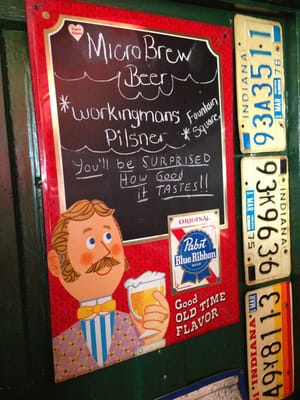 MicroBrew
Beer
*Workingmans
Pilsner
Fountain
*Square
You'll be SURPRISED
HOW Good
it TASTES!!
ORIGINAL
Pabst
Blue Ribbon
Good
OLD TIME
FLAVOR
INDIANA
93A351
MAR 76
93K9636
INDIANA